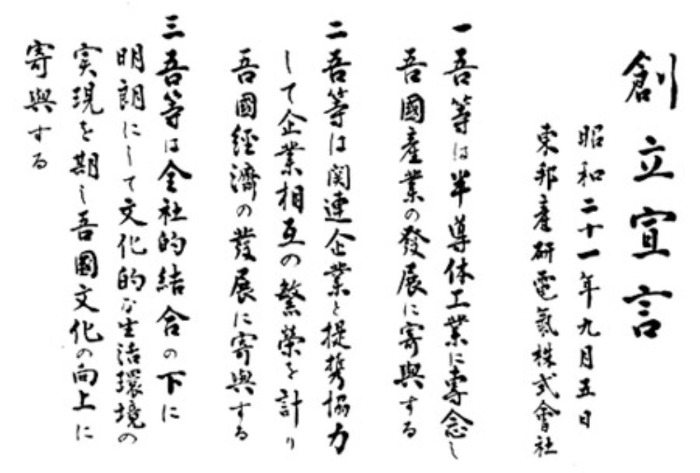 創立宣言
昭和二十一年九月五日
東邦産研電氣株式會社
一吾等は半導体工業に専念し
吾國産業の發展に寄與する
二吾等は関連企業と提携協力
して企業相互の繁榮を計り
吾國経済の發展に寄與する
三吾等は全社的結合の下に
明朗にして文化的な生活環境の
実現を期し吾國文化の向上に
寄與する